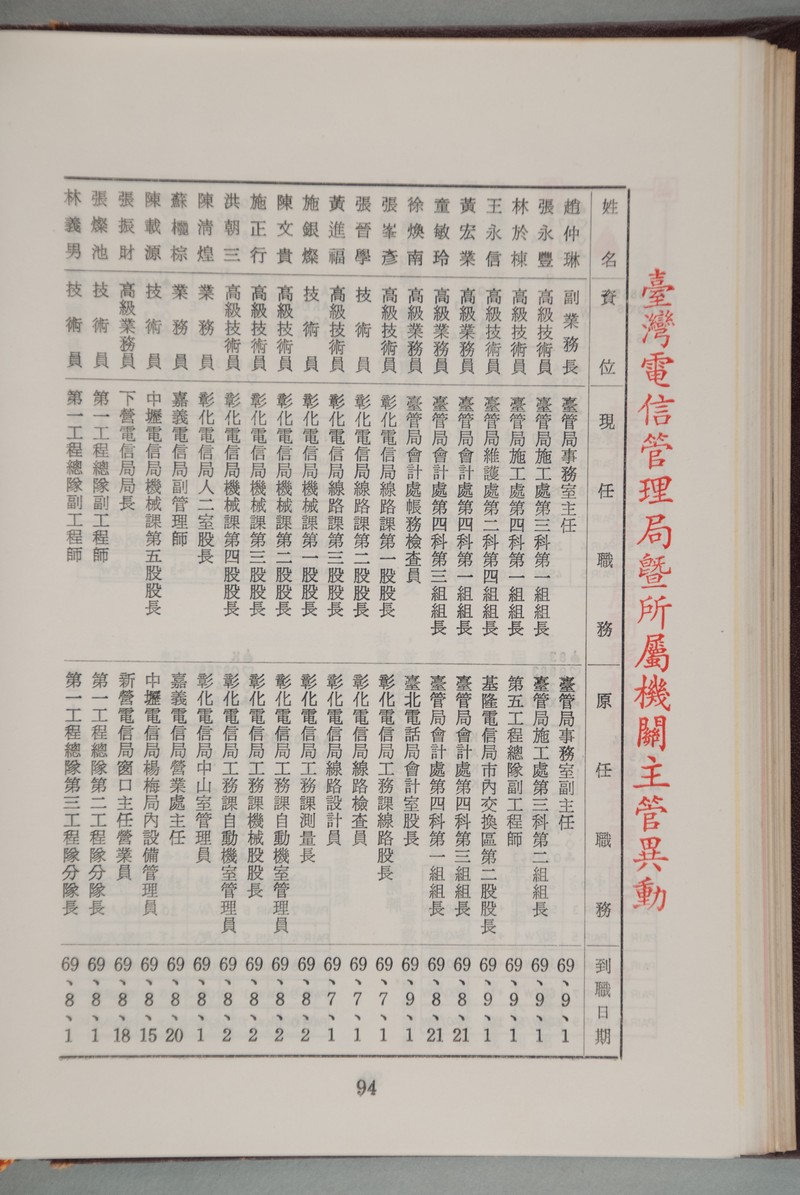 臺灣電信管理局暨所屬機關主管異動
姓名 資位 現任職務 原任職務 到職日期
趙仲琳 副業務長 臺管局事務室主任 臺管局事務室副主任 69、9、1
張永豐 高級技術員 臺管局施工處第三科第一組組長 臺管局施工處第三科第二組組長 69、9、1
林於棟 高級技術員 臺管局施工處第四科第一組組長 第五工程總隊副工程師 69、9、1
王永信 高級技術員 臺管局維護處第二科第四組組長 基隆電信局市內交換區第二股股長 69、9、1
黃宏業 高級業務員 臺管局會計處第四科第一組組長 臺管局會計處第四科第三組組長 69、8、21
童敏玲 高級業務員 臺管局會計處第四科第三組組長 臺管局會計處第四科第一組組長 69、8、21
徐煥南 高級業務員 臺管局會計處帳務檢查員 臺北電話局會計室股長 69、9、1
張峯彥 高級技術員 彰化電信局線路課第一股股長 彰化電信局工務課線路股長 69、7、1
張晉學 技術員 彰化電信局線路課第二股股長 彰化電信局線路檢查員 69、7、1
黃進福 高級技術員 彰化電信局線路課第三股股長 彰化電信局線路設計員 69、7、1
施銀燦 技術員 彰化電信局機械課第一股股長 彰化電信局工務課測量長 69、8、2
陳文貴 高級技術員 彰化電信局機械課第二股股長 彰化電信局工務課自動機室管理員 69、8、2
施正行 高級技術員 彰化電信局機械課第三股股長 彰化電信局工務課機械股股長 69、8、2
洪朝三 高級技術員 彰化電信局機械課第四股股長 彰化電信局工務課自動機室管理員 69、8、2
陳清煌 業務員 彰化電信局人二室股長 彰化電信局中山室管理員 69、8、1
蘇欞棕 業務員 嘉義電信局副管理師 嘉義電信局營業處主任 69、8、20
陳載源 技術員 中壢電信局機械課第五股股長 中壢電信局楊梅局內設備管理員 69、8、15
張振財 高級業務員 下營電信局局長 新營電信局窗口主任營業員 69、8、18
張燦池 技術員 第一工程總隊副工程師 第一工程總隊第二工程隊分隊長 69、8、1
林義男 技術員 第一工程總隊副工程師 第一工程總隊第三工程隊分隊長 69、8、1
94